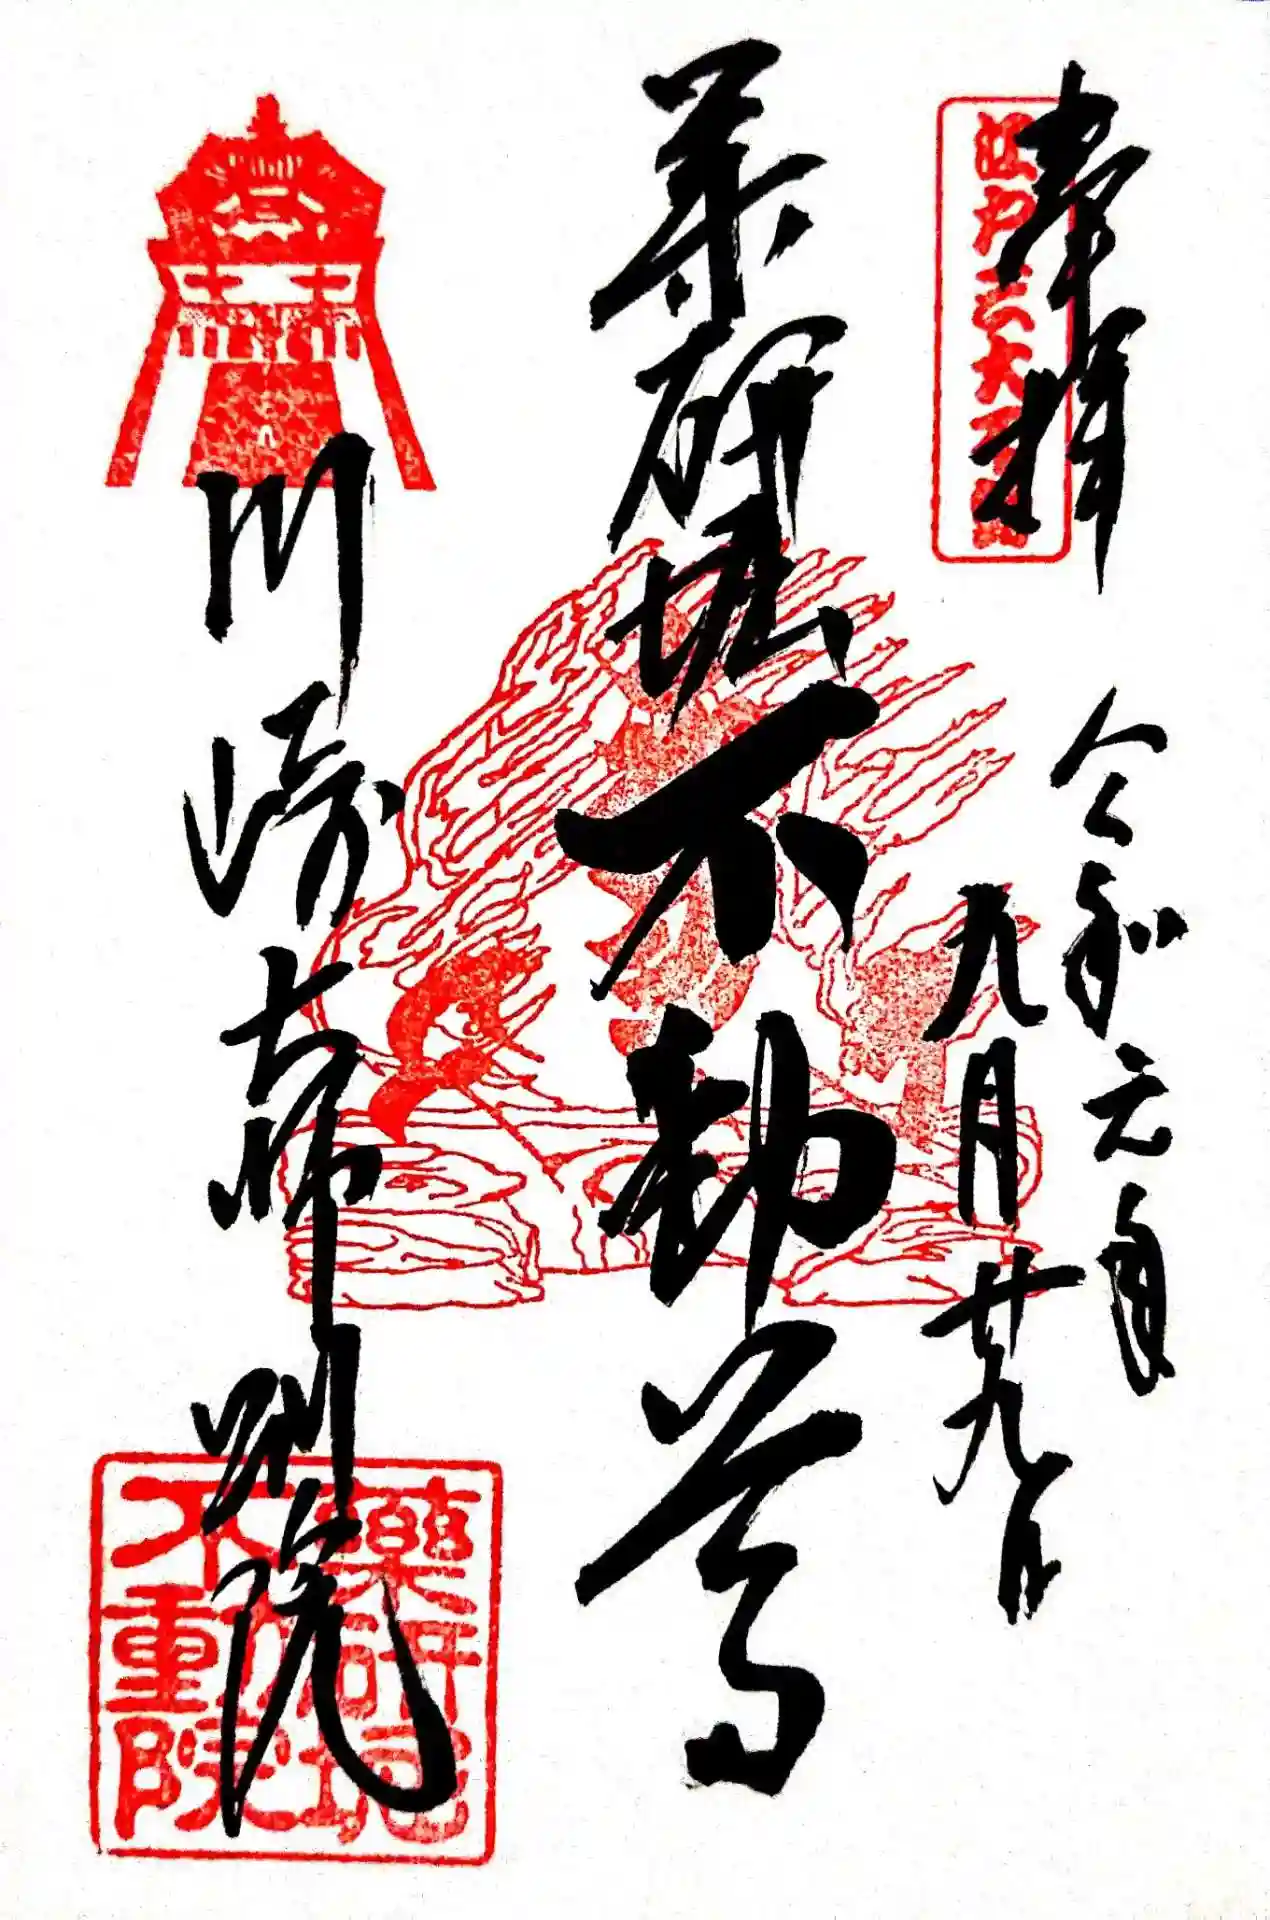 奉拝
江戸三大不動
令和元年
九月廿九日
薬研堀不動尊
川崎大師別院
藥研堀
不動院